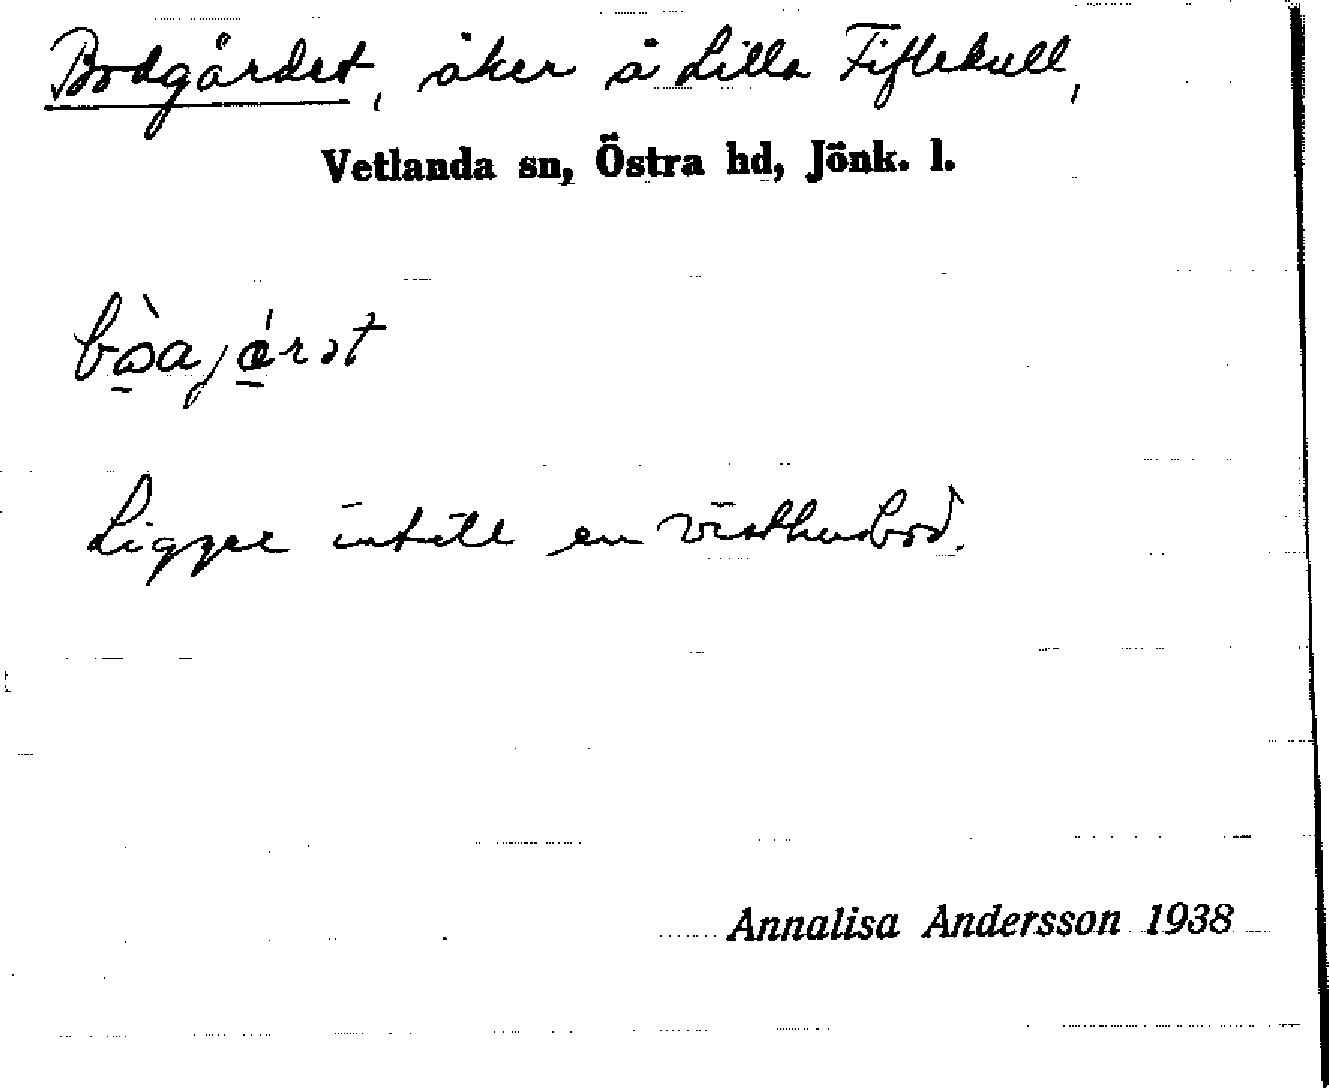 Bodgärdet, åker å Lilla Fiflekull,
Vetlanda sn, Östra hd, Jönk. l.
Ligger intill en visthusbod.
Annalisa Andersson 1938